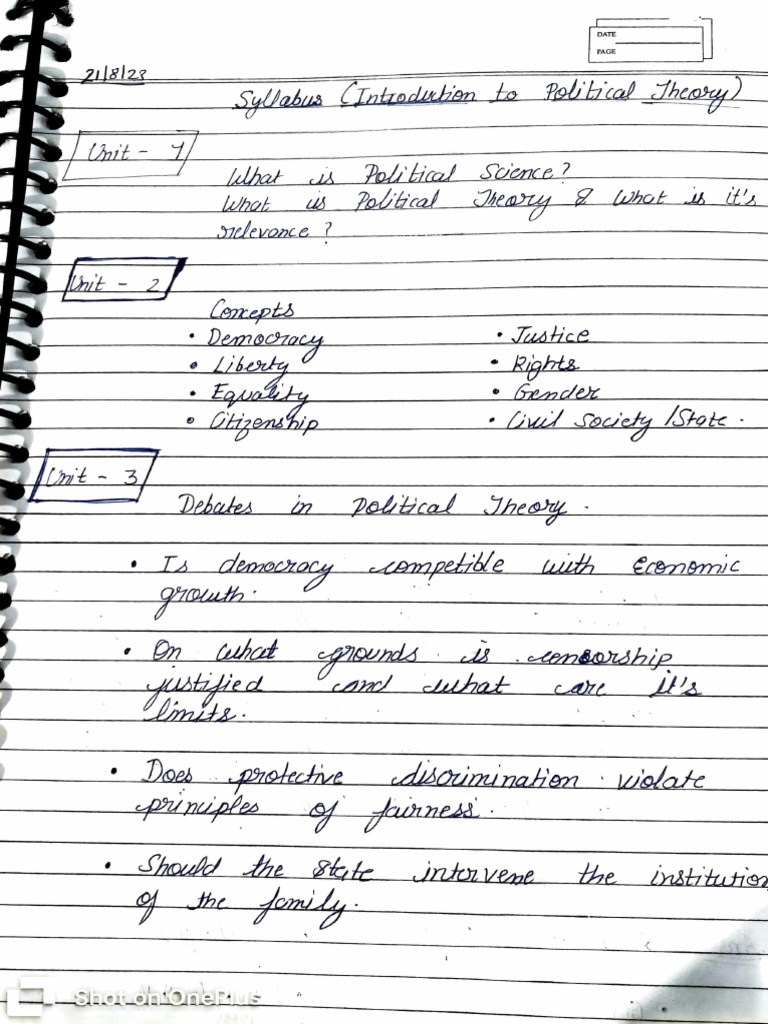 DATE
PAGE
21/8/23
Syllabus (Introduction to Political Theory)
Unit - 1
What is Political Science?
What is Political Theory & What is it's
relevance?
Unit - 2
Concepts
• Democracy • Justice
• Liberty • Rights
• Equality • Gender
• Citizenship • Civil Society /State.
Unit - 3
Debates in Political Theory.
• Is democracy competible with economic
growth.
• On what grounds is censorship
justified and what are it's
limits.
• Does protective discrimination violate
principles of fairness.
• Should the State intervene the institution
of the family.
Shot on OnePlus